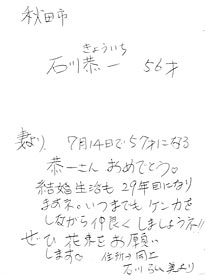 秋田市
きょういち
石川恭一 56才
妻より 7月14日で57才になる
恭一さんおめでとう。
結婚生活も29年目になり
ますネ。いつまでもケンカを
しながら仲良くしましょうネ!!
ぜひ花束をお願い
します。 住所は同上
石川